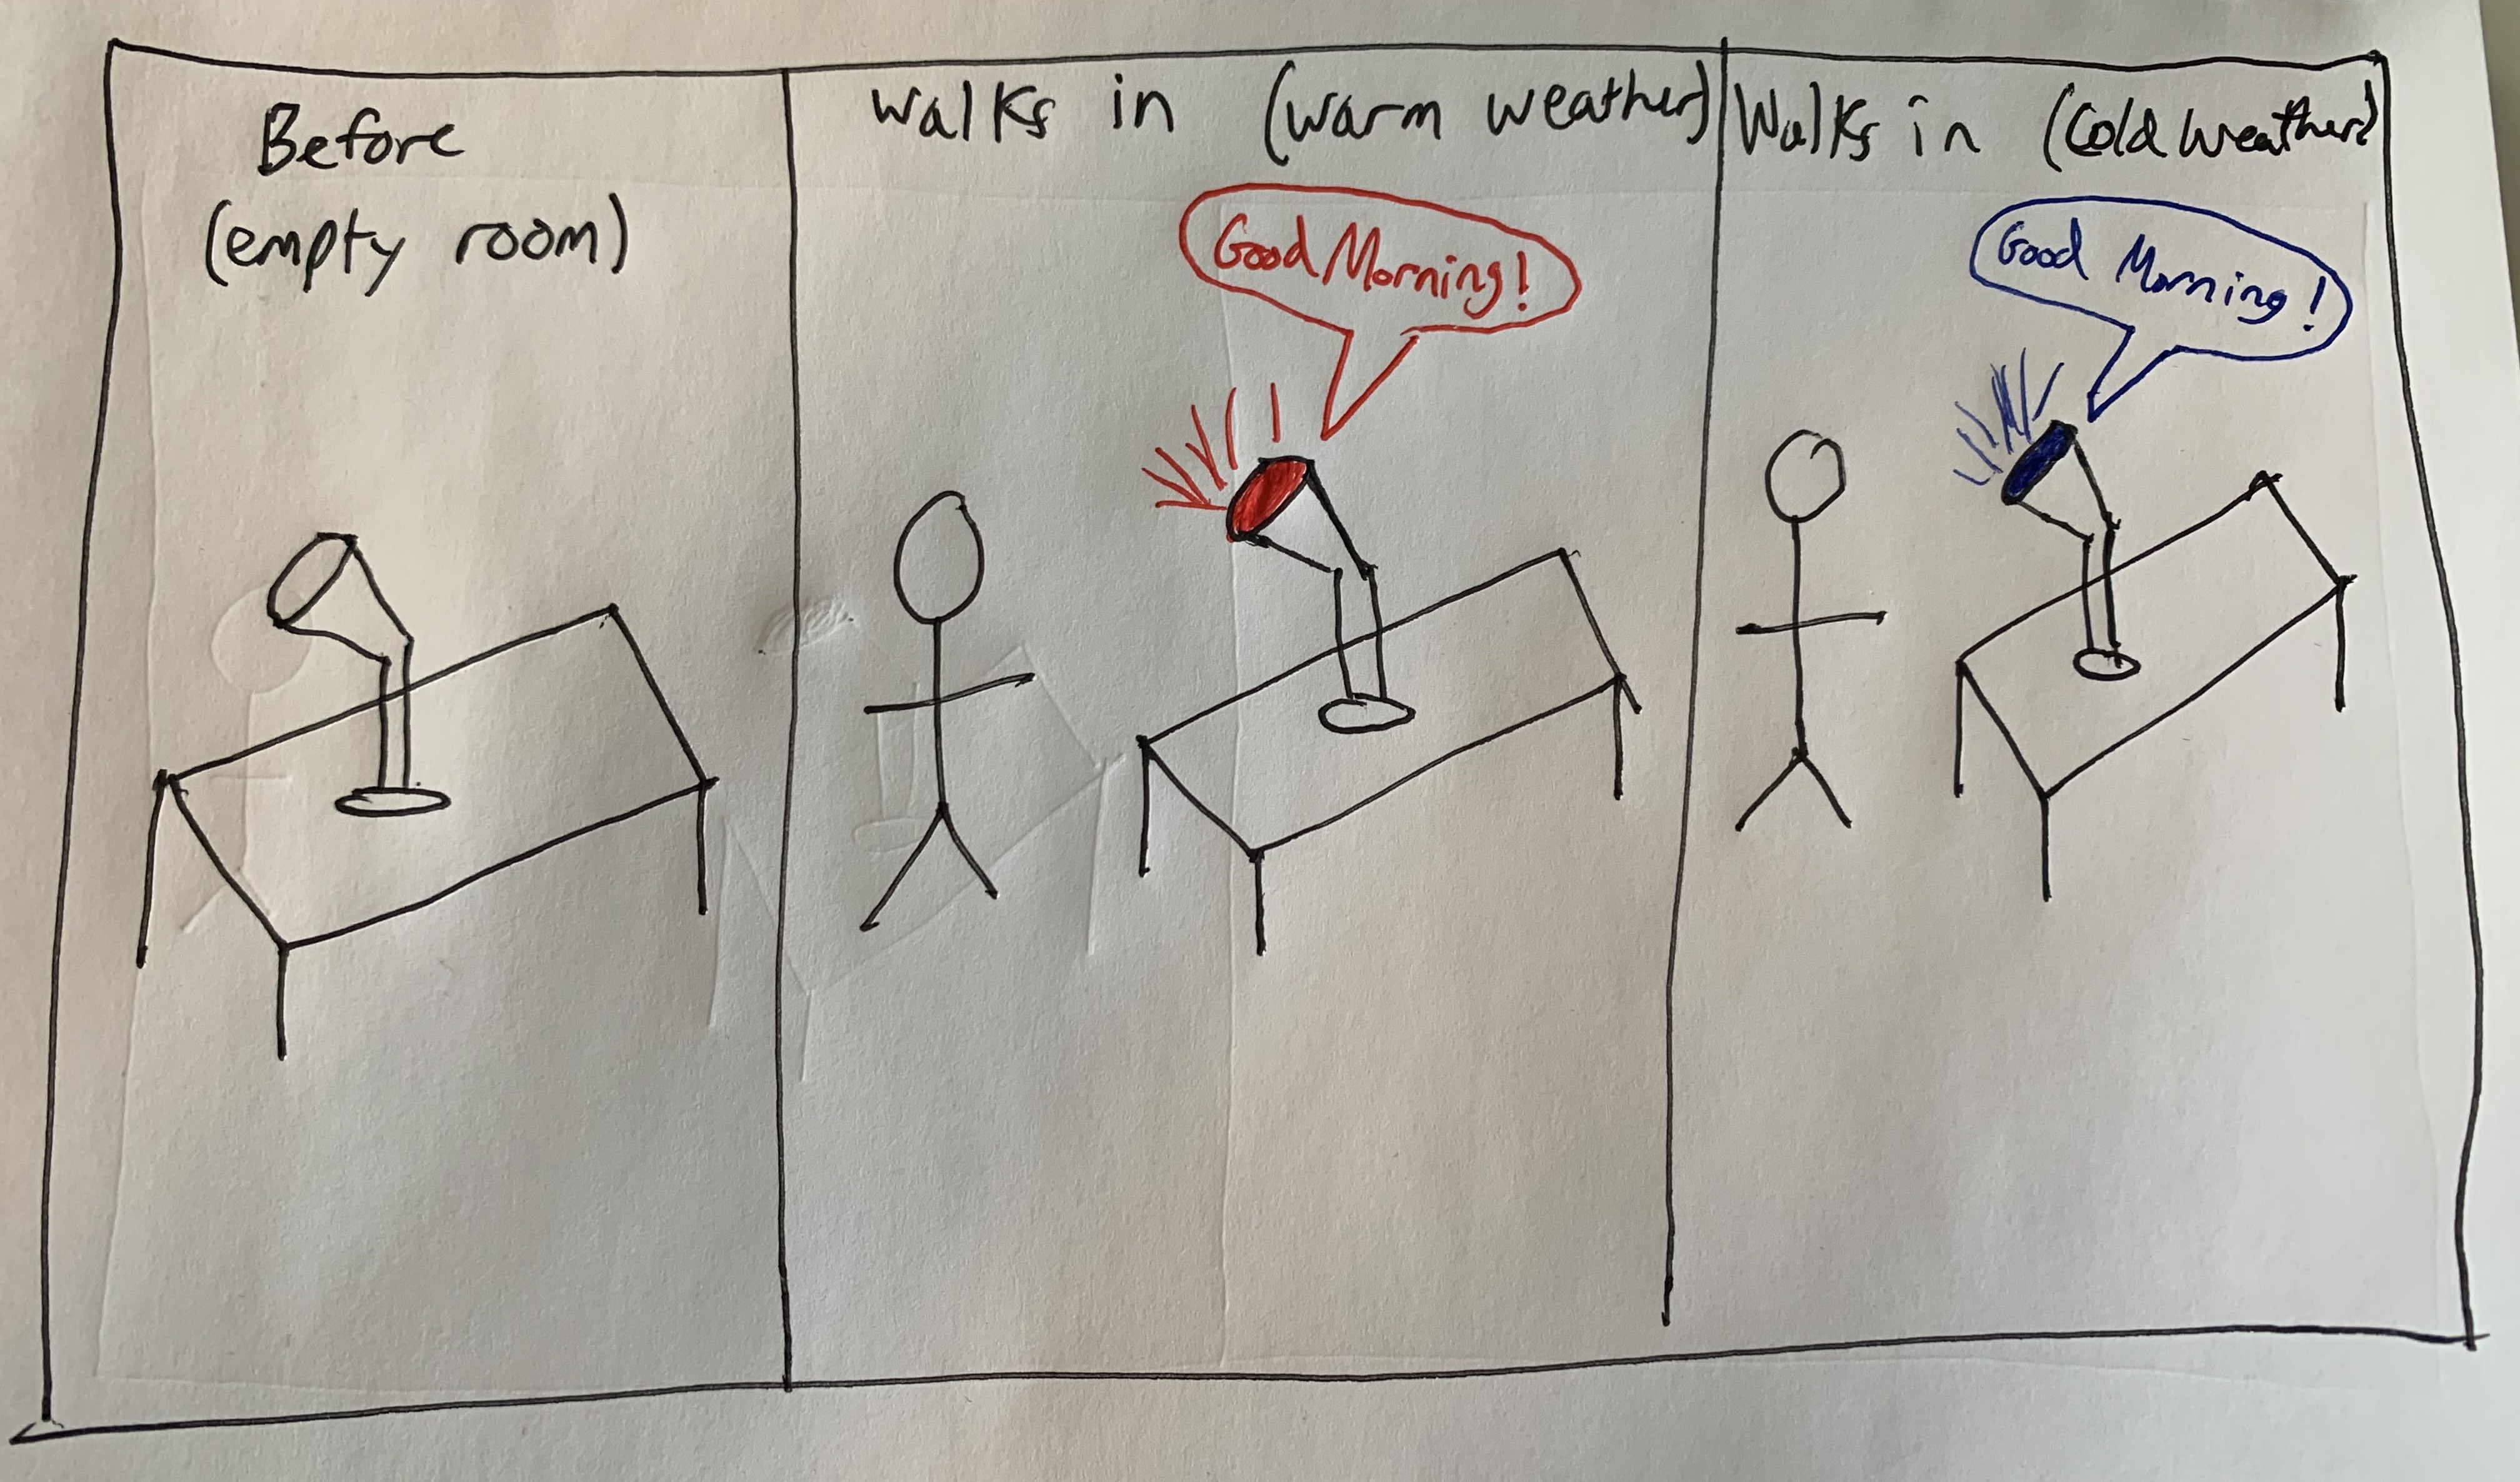 Before
(empty room)
walks in (warm weather)
Good Morning!
Walks in (Cold weather)
Good Morning!